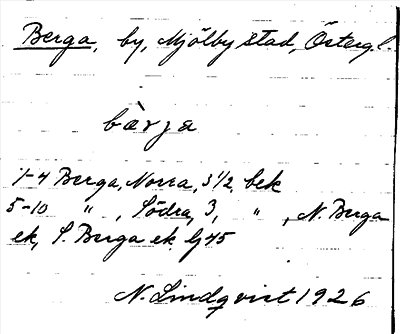 Berga, by, Mjölby stad, Östergl.
bærja
1-4 Berga, Norra, 3 1/2, bek
5-10 " , Södra, 3, " , N. Berga
ek, S. Berga ek. lj 45
N. Lindqvist 1926